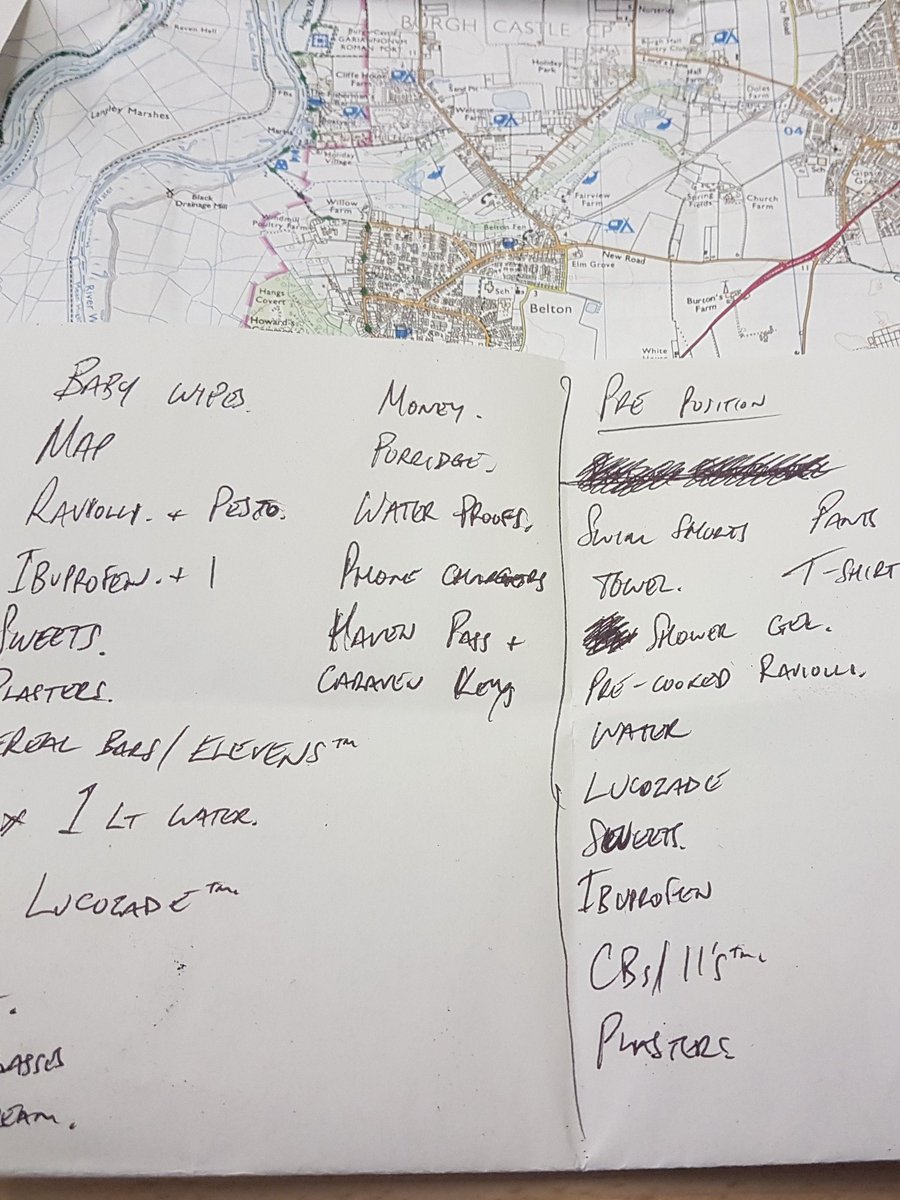 BURGH CASTLE CP
Raven Hall
GARIANNONUM
ROMAN FORT
Nurseries
Holiday
Park
Langley Marshes
Black
Drainage Mill
Holiday
Village
Willow
Farm
Windmill
Poultry Farm
Belton Fen
Fairview
Farm
Spring
Fields
Church
Farm
Doles
Farm
04
Sch
New Road
Elm Grove
11
Hangs
Covert
Howard's
Sch
3
Belton
Burton's
Farm
White
BABY WIPES.
MAP
RAVIOLLI. + PESTO.
IBUPROFEN. + 1
SWEETS.
PLASTERS.
EREAL BARS / ELEVENS™
1 LT WATER.
LUCOZADE™.
ASSES
EAM.
MONEY.
PORRIDGE.
WATER PROOFS.
PHONE CHARGERS
HAVEN PASS +
CARAVEN KEYS
PRE POSITION
SWIM SHORTS PANTS
TOWEL. T-SHIRT
SHOWER GEL.
PRE-COOKED RAVIOLLI.
WATER
LUCOZADE
SWEETS.
IBUPROFEN
CBs/11's™.
PLASTERS